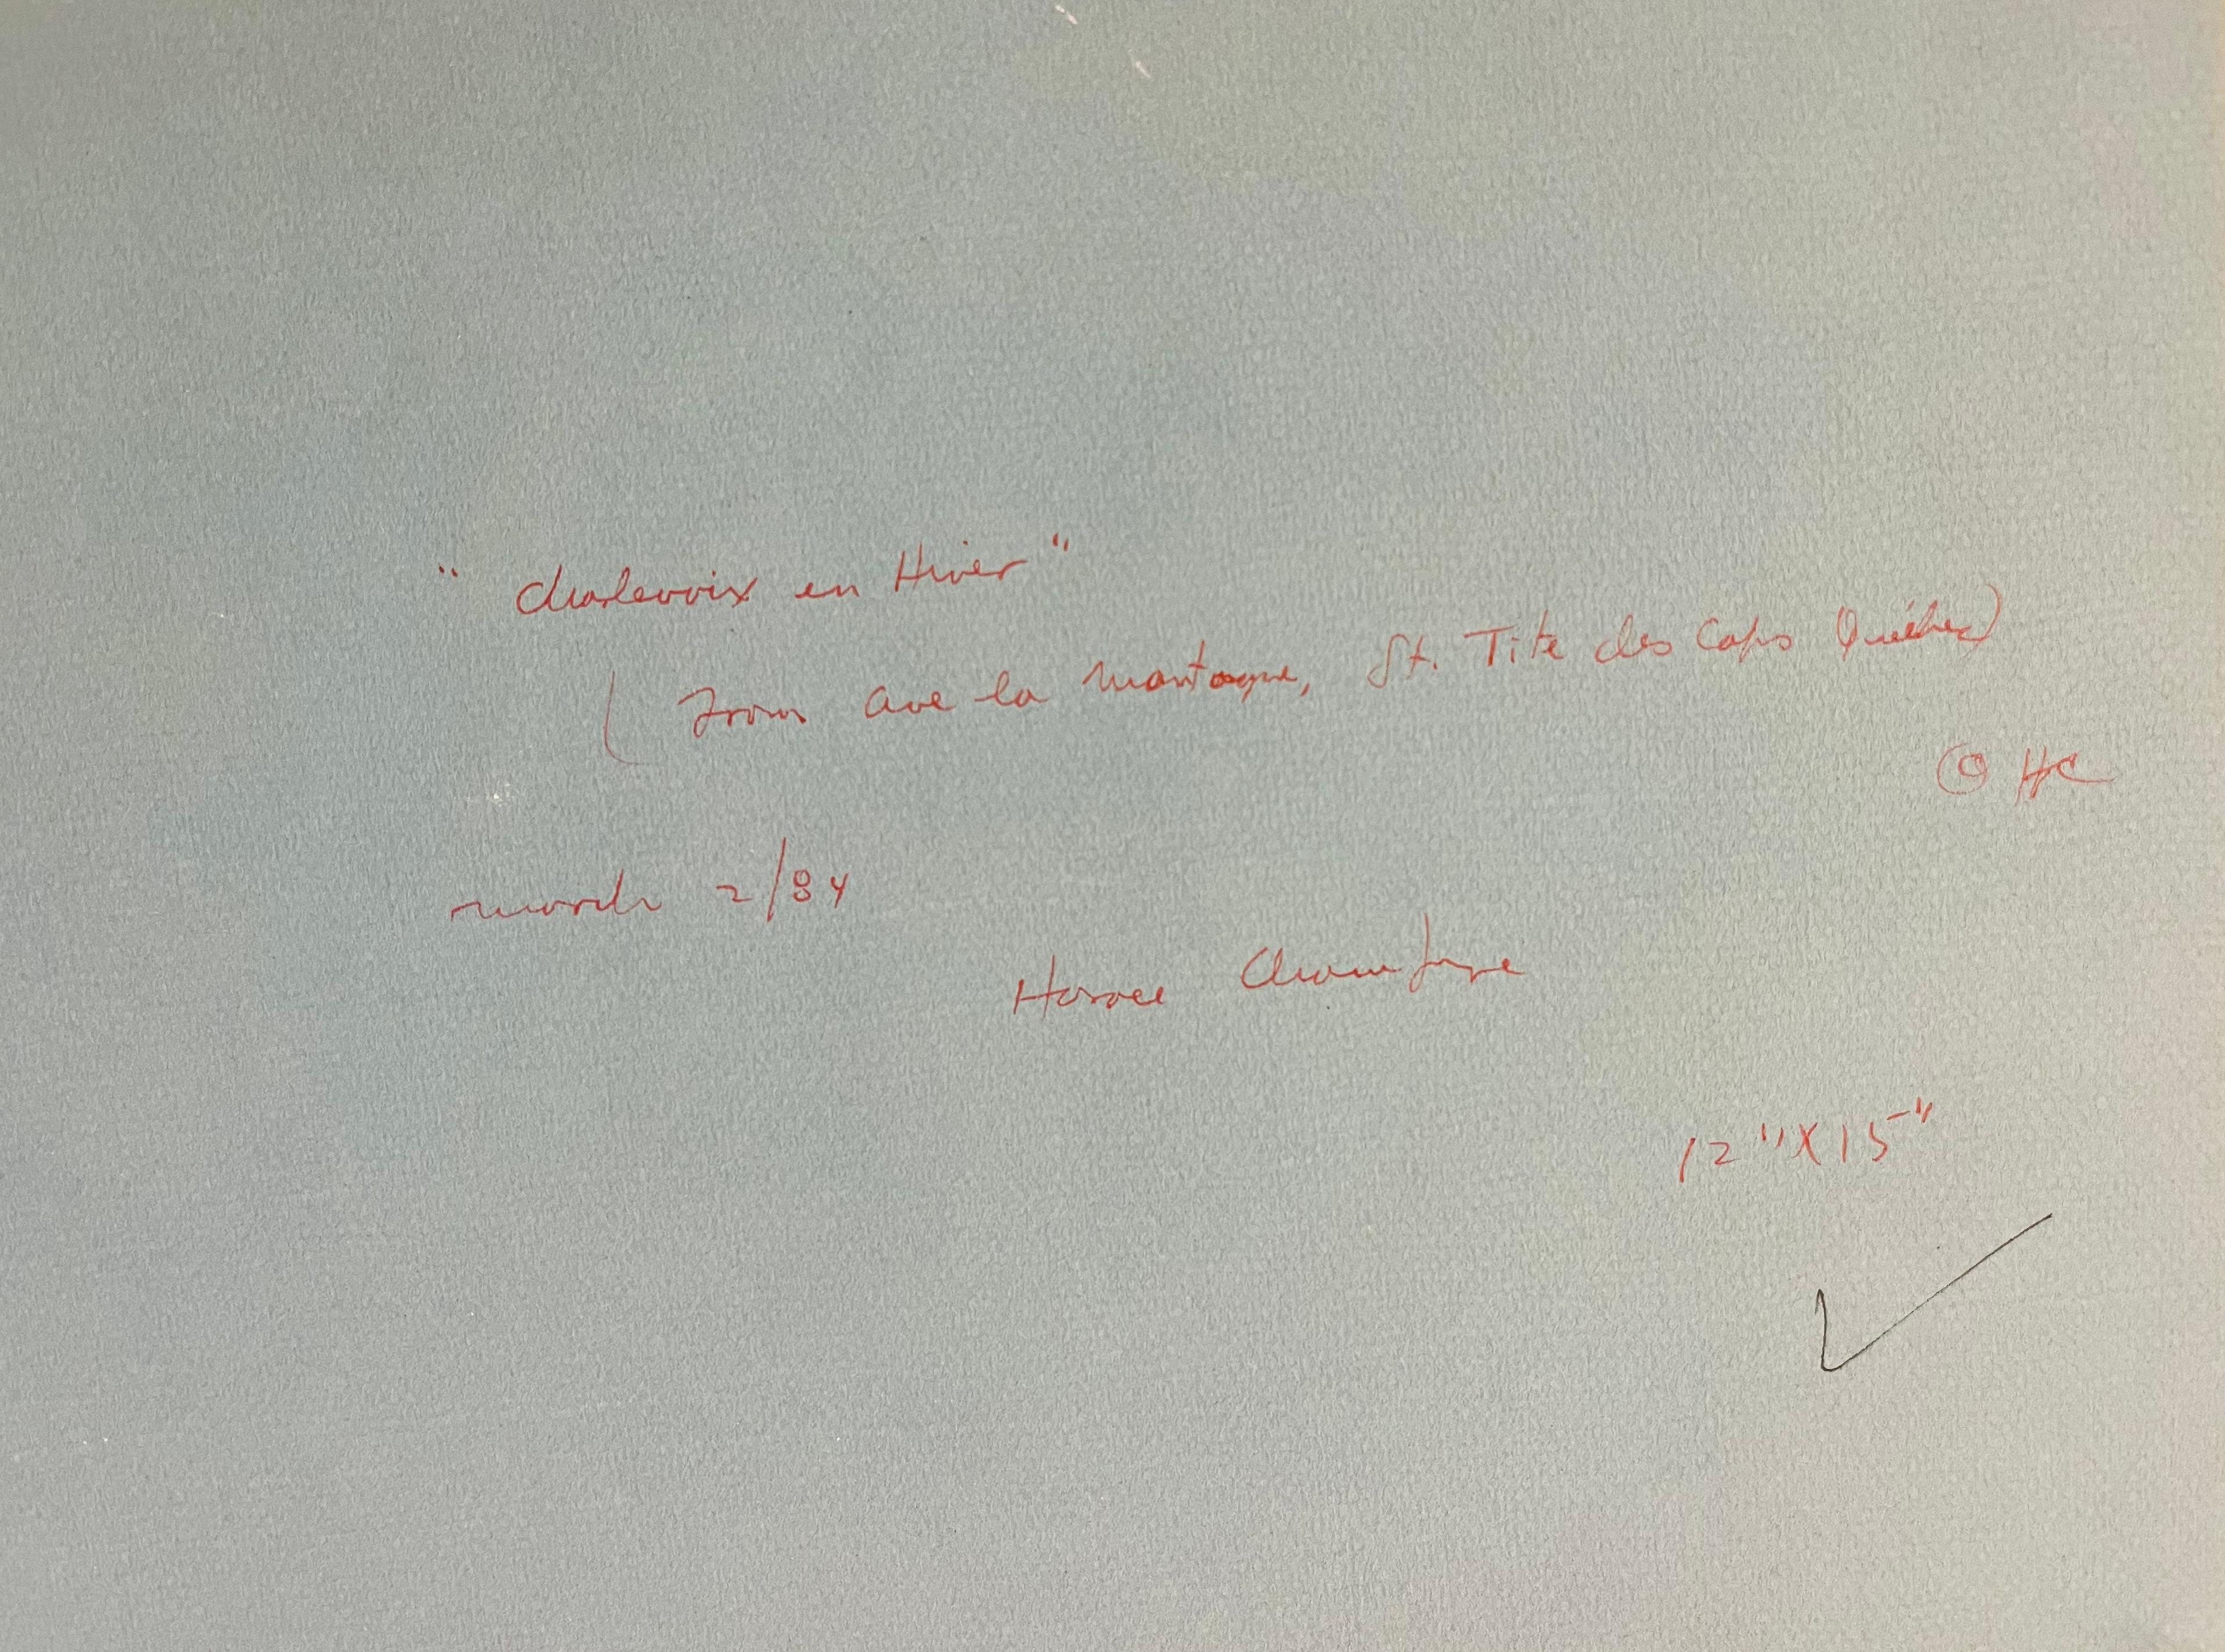 " Charlevoix en Hiver "
( From Ave la montagne, St. Tite des Caps Québec)
© HC
march 2/84
Horace Champagne
12" X 15"